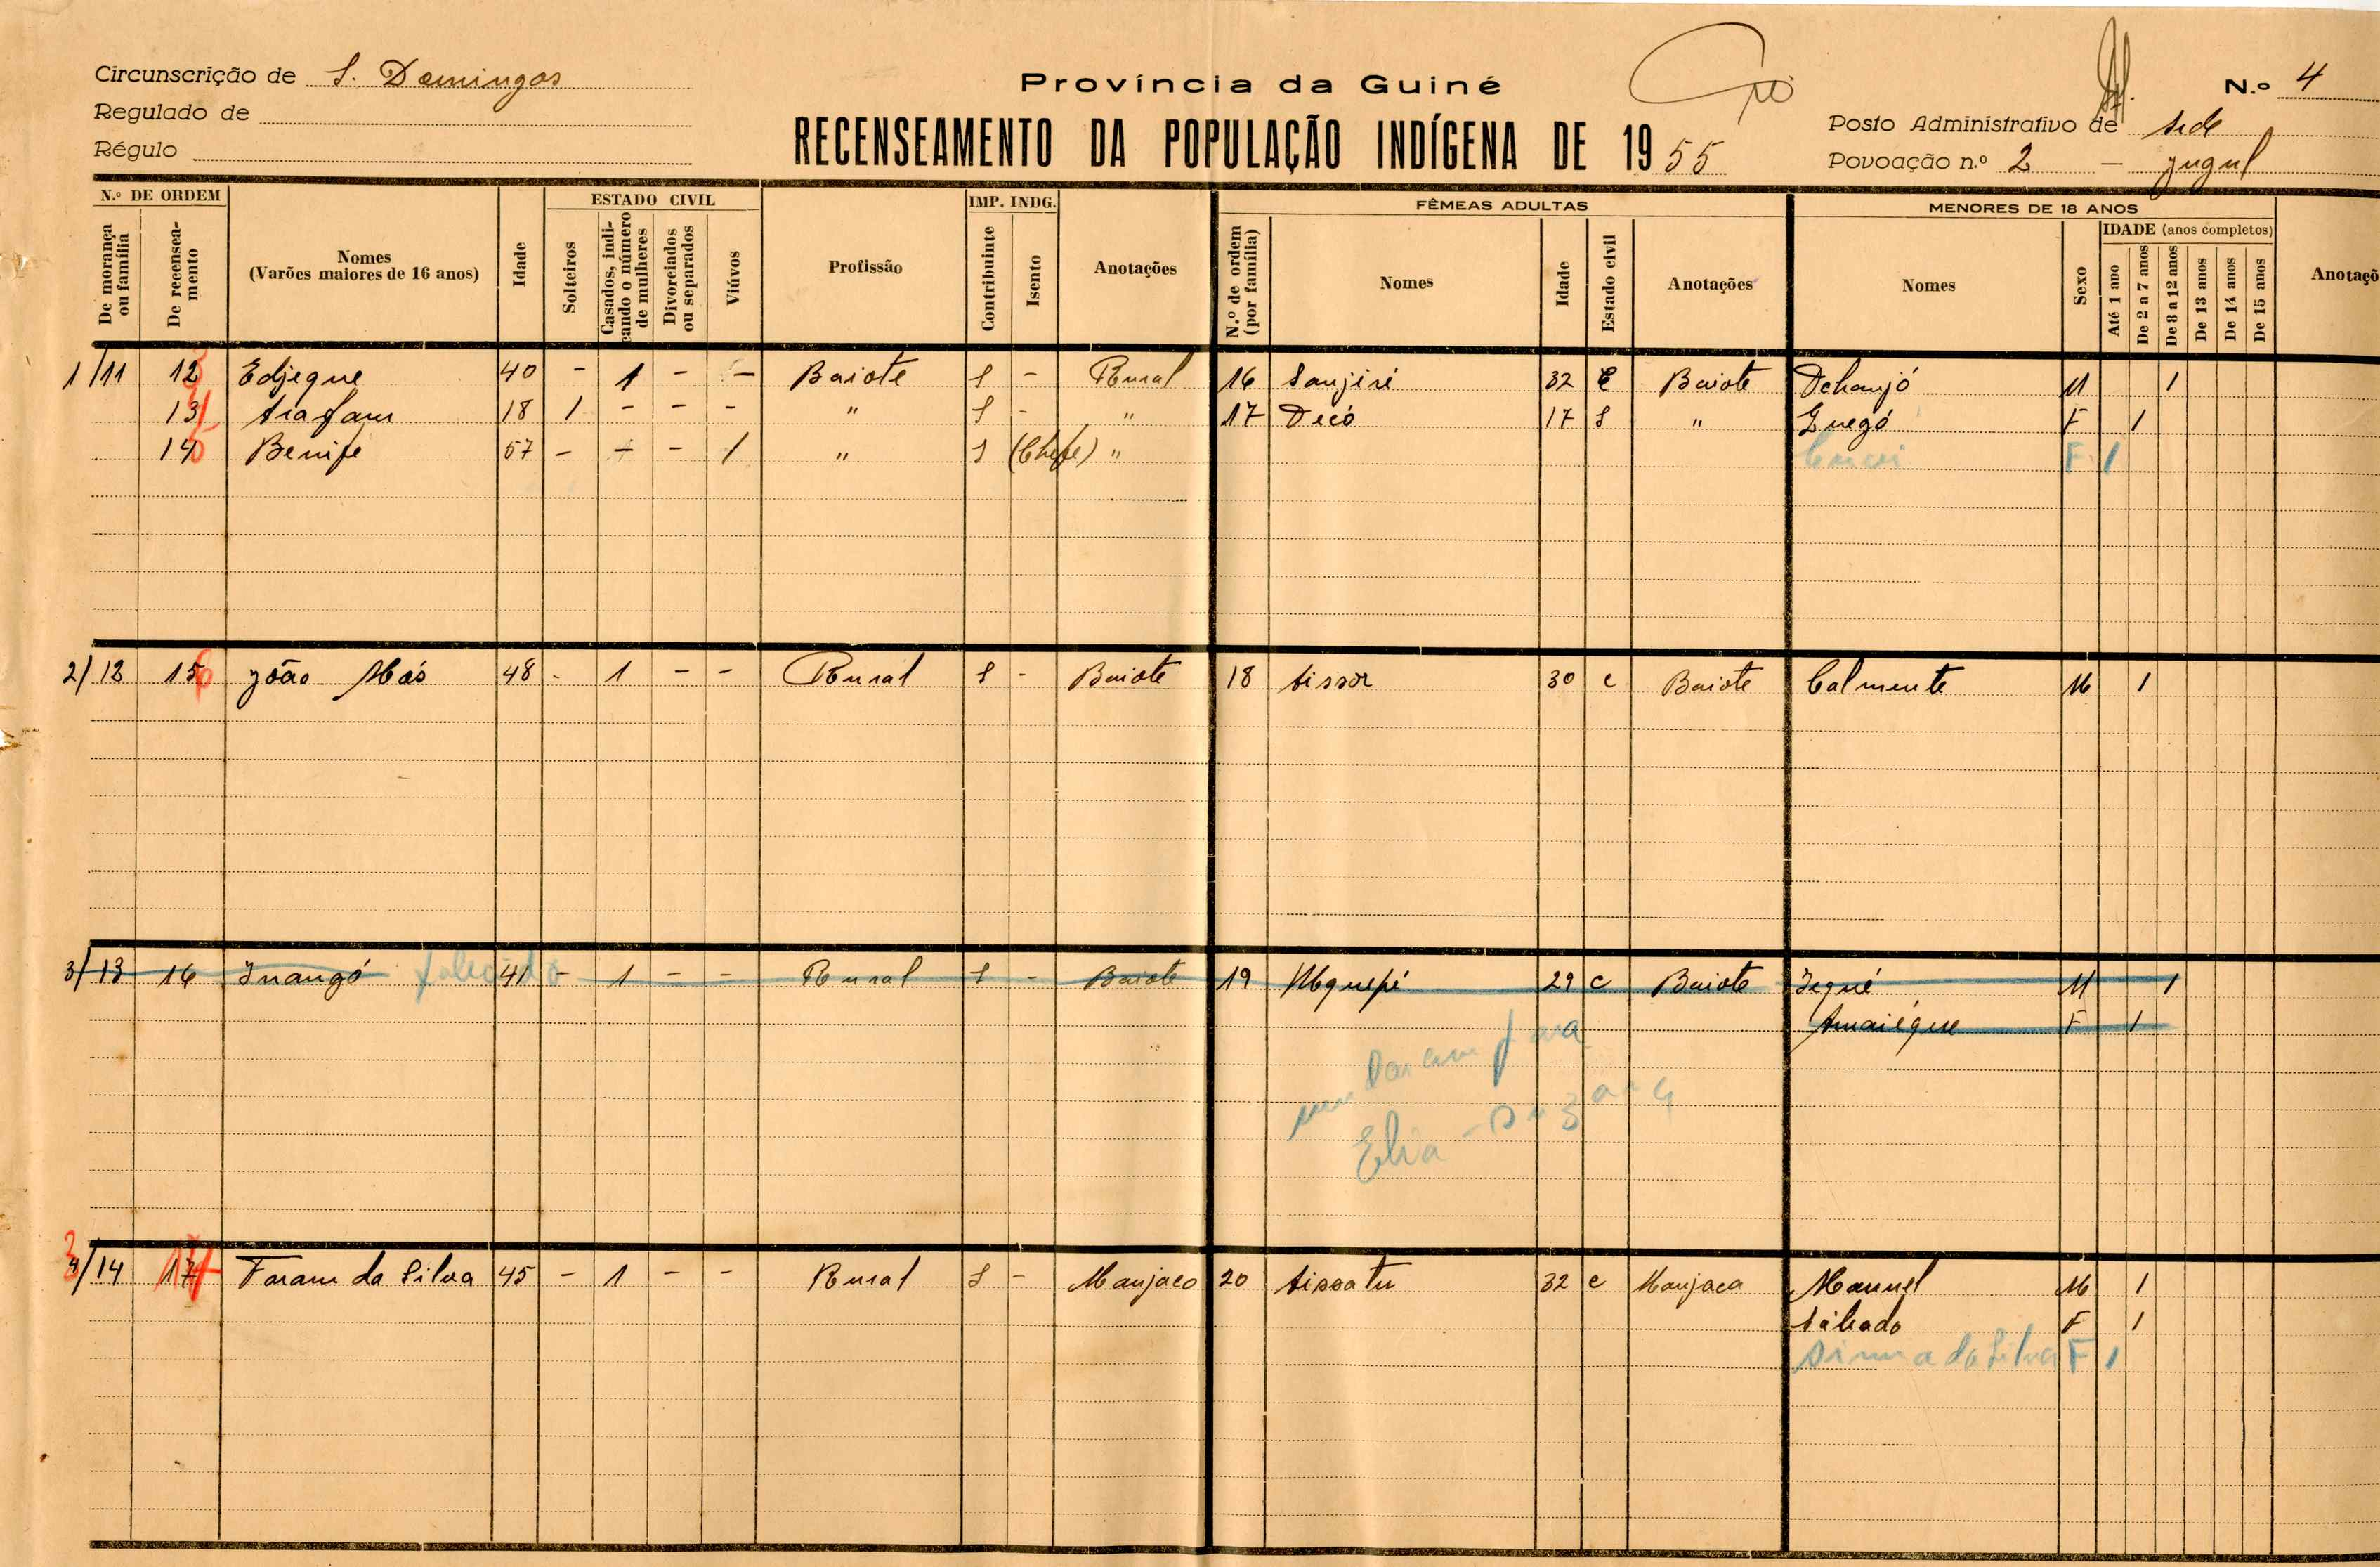 Circunscrição de S. Domingos
Regulado de
Régulo
Província da Guiné
RECENSEAMENTO DA POPULAÇÃO INDÍGENA DE 1955
N.º 4
Posto Administrativo de sede
Povoação n.º 2 – Jugul
N.º DE ORDEM
De morança ou família
De recenseamento
Nomes
(Varões maiores de 16 anos)
Idade
ESTADO CIVIL
Solteiros
Casados, indicando o número de mulheres
Divorciados ou separados
Viúvos
Profissão
IMP. INDG.
Contribuinte
Isento
Anotações
FÊMEAS ADULTAS
N.º de ordem (por família)
Nomes
Idade
Estado civil
Anotações
MENORES DE 18 ANOS
Nomes
Sexo
IDADE (anos completos)
Até 1 ano
De 2 a 7 anos
De 8 a 12 anos
De 13 anos
De 14 anos
De 15 anos
Anotaçõ
1/11 12 Edjeque 40 - 1 - - Baiote S - Rural 16 Sanjiré 32 C Baiote Dchanjó M 1
13 18 1 - - - " S - " 17 Decó 17 S " Guegó F 1
14 Benife 57 - - - 1 " S (Chefe) " F 1
2/12 15 João Más 48 - 1 - - Rural S - Baiote 18 Aissor 30 c Baiote Calmente M 1
3/13 16 Inangó falecido 41 - 1 - - Rural S - Baiote 19 29 c Baiote Segué M 1
Amaiéque F 1
mudaram para
Elia
3/14 17 Faram da Silva 45 - 1 - - Rural S - Manjaco 20 Aissatu 32 c Manjaca Manuel M 1
Sábado F 1
da Silva F 1